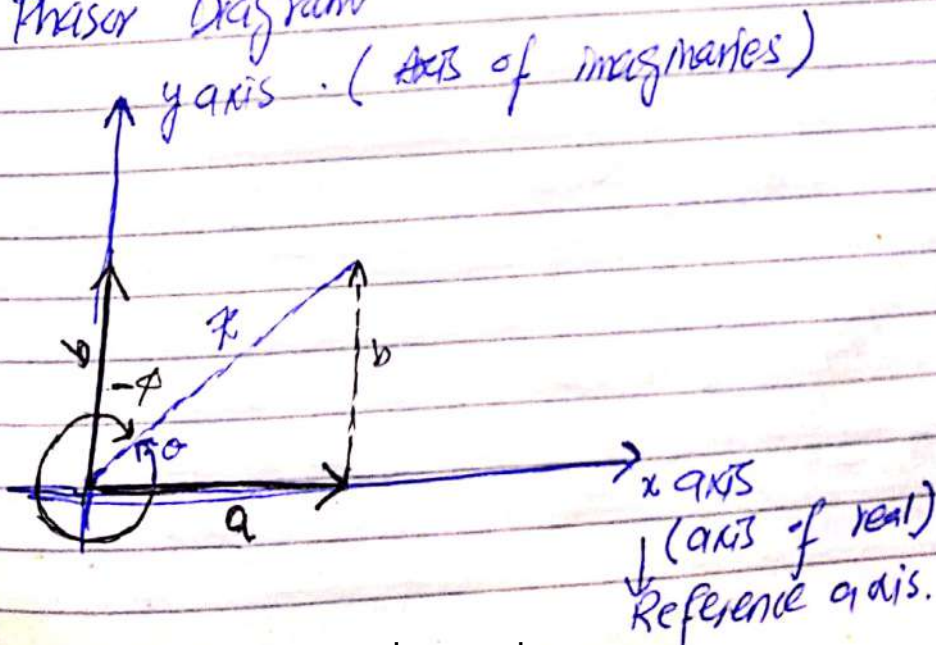 Phasor Diagram
y axis . (Axis of imaginaries)
b
z
b
-φ
θ
a
x axis
(axis of real)
Reference axis.